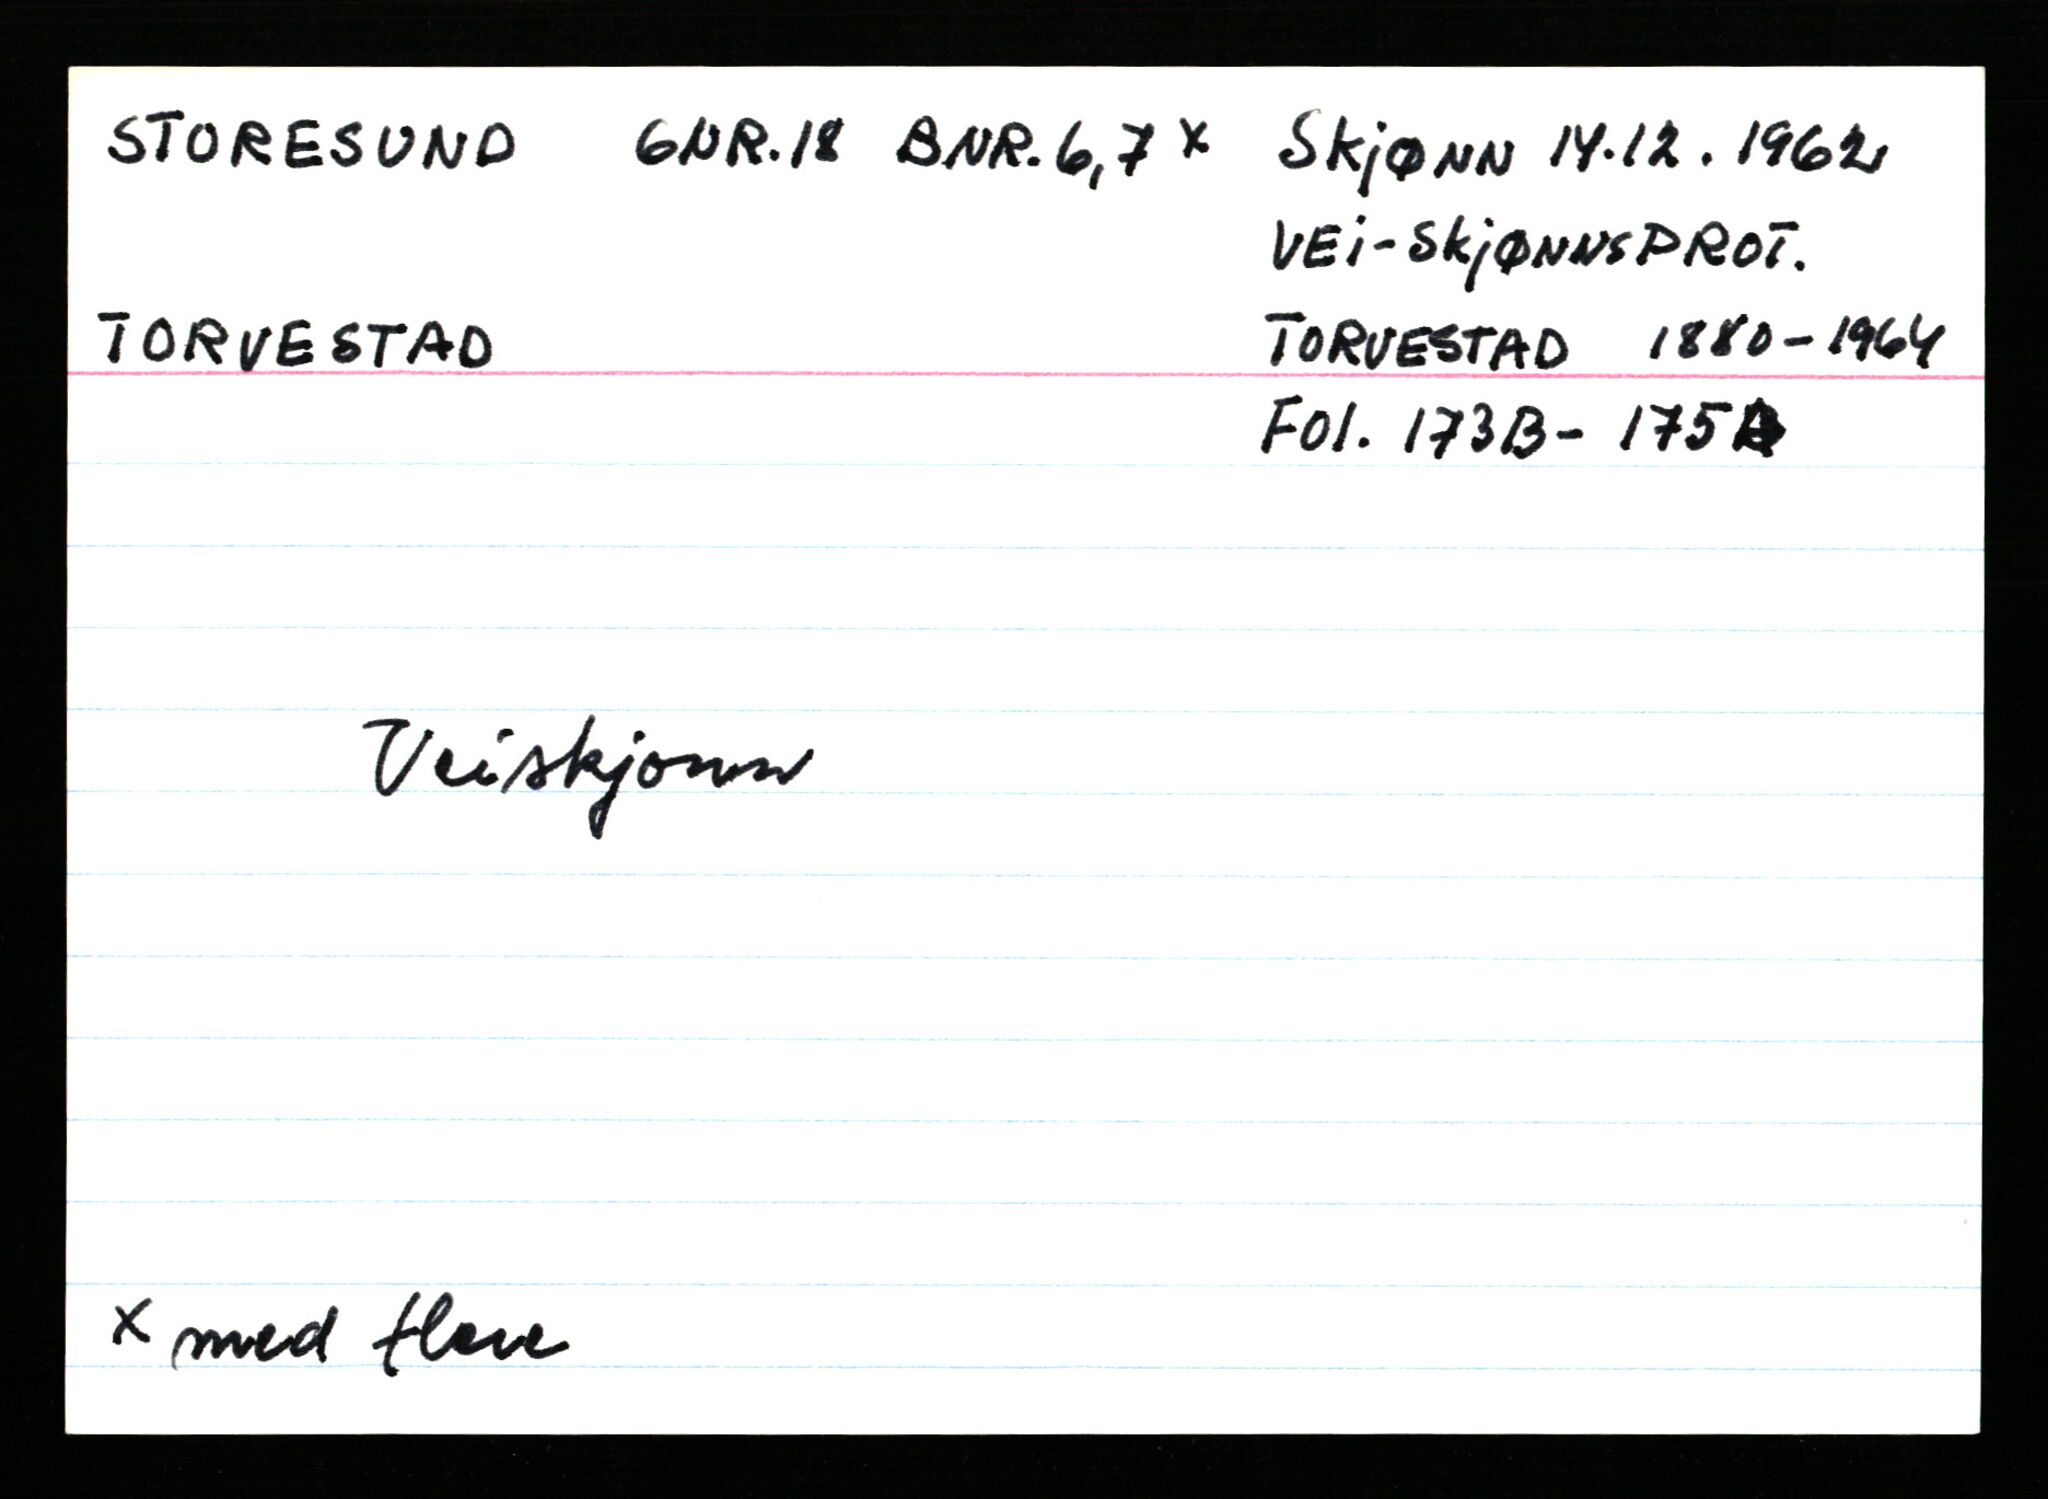 STORESUND GNR.18 BNR.6,7 x Skjønn 14.12.1962
VEI-SkjØNNSPROT.
TORVESTAD TORVESTAD 1880-1964
Fol. 173B - 175A
Veiskjonn
x med flere